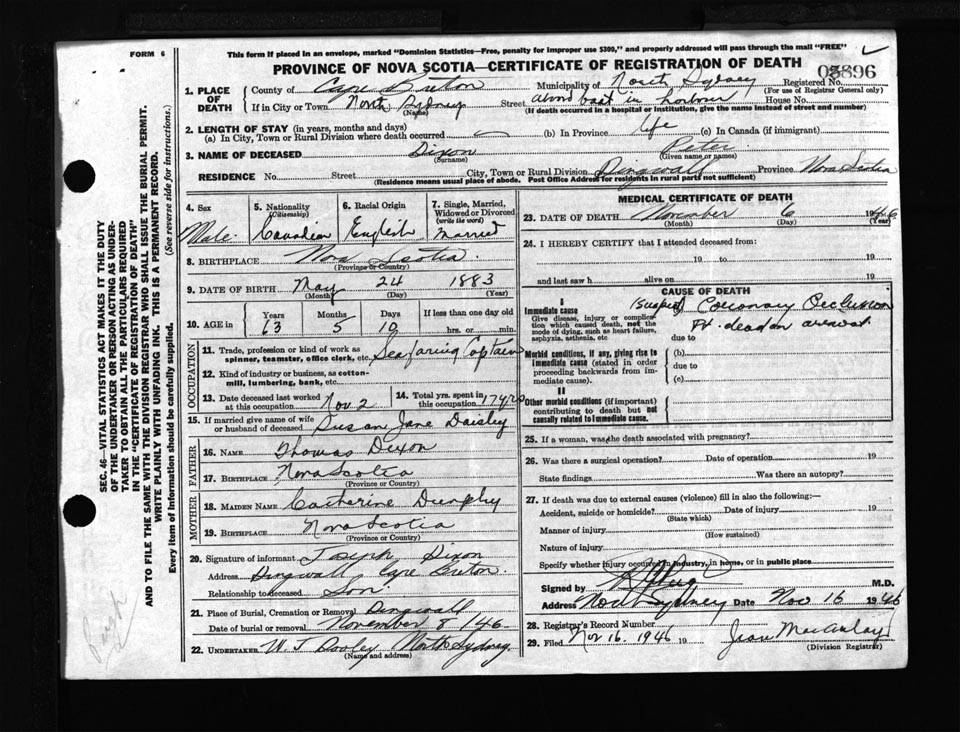 FORM 6
This form if placed in an envelope, marked "Dominion Statistics—Free, penalty for improper use $300," and properly addressed will pass through the mail "FREE"
PROVINCE OF NOVA SCOTIA—CERTIFICATE OF REGISTRATION OF DEATH
03896
1. PLACE OF DEATH
County of Cape Breton Municipality of North Sydney Registered No.
(For use of Registrar General only)
If in City or Town North Sydney Street aboard boat in harbour House No.
(Name) (If death occurred in a hospital or institution, give the name instead of street and number)
2. LENGTH OF STAY (in years, months and days)
(a) In City, Town or Rural Division where death occurred — (b) In Province life (c) In Canada (if immigrant)
3. NAME OF DECEASED Dixon Peter
(Surname) (Given name or names)
RESIDENCE No. Street City, Town or Rural Division Dingwall Province Nova Scotia
(Residence means usual place of abode. Post Office Address for residents in rural parts not sufficient)
4. Sex Male
5. Nationality (Citizenship) Canadian
6. Racial Origin English
7. Single, Married, Widowed or Divorced (write the word) Married
8. BIRTHPLACE Nova Scotia
(Province or Country)
9. DATE OF BIRTH May 24 1883
(Month) (Day) (Year)
10. AGE in Years Months Days If less than one day old
63 5 19 hrs. or min.
OCCUPATION
11. Trade, profession or kind of work as spinner, teamster, office clerk, etc. Seafaring Captain
12. Kind of industry or business, as cotton-mill, lumbering, bank, etc.
13. Date deceased last worked at this occupation Nov 2
14. Total yrs. spent in this occupation 17 yrs
15. If married give name of wife or husband of deceased Susan Jane Daisley
FATHER
16. NAME Thomas Dixon
17. BIRTHPLACE Nova Scotia
(Province or Country)
MOTHER
18. MAIDEN NAME Catherine Dunphy
19. BIRTHPLACE Nova Scotia
(Province or Country)
20. Signature of informant Joseph Dixon
Address Dingwall Cape Breton.
Relationship to deceased Son
21. Place of Burial, Cremation or Removal Dingwall
Date of burial or removal November 8 / 46
22. UNDERTAKER W J Dooley North Sydney.
(Name and address)
MEDICAL CERTIFICATE OF DEATH
23. DATE OF DEATH November 6 1946
(Month) (Day)
24. I HEREBY CERTIFY that I attended deceased from:
19 to 19
and last saw h alive on 19
CAUSE OF DEATH
I
Immediate cause
Give disease, injury or complication which caused death, not the mode of dying, such as heart failure, asphyxia, asthenia, etc
(Suspect) Coronary Occlusion
Pt. dead on arrival
due to
Morbid conditions, if any, giving rise to immediate cause (stated in order proceeding backwards from immediate cause).
(b)
due to
(c)
II
Other morbid conditions (if important) contributing to death but not causally related to immediate cause.
25. If a woman, was the death associated with pregnancy?
26. Was there a surgical operation? Date of operation 19
State findings Was there an autopsy?
27. If death was due to external causes (violence) fill in also the following:—
Accident, suicide or homicide? Date of injury 19
(State which)
Manner of injury
(How sustained)
Nature of injury
Specify whether injury occurred in industry, in home, or in public place
Signed by M.D.
Address North Sydney Date Nov 16 1946
28. Registrar's Record Number
29. Filed Nov 16. 1946 19 Jean MacAulay
(Division Registrar)
SEC. 46—VITAL STATISTICS ACT MAKES IT THE DUTY
OF THE UNDERTAKER OR PERSON ACTING AS UNDER-
TAKER TO OBTAIN ALL THE PARTICULARS REQUIRED
IN THE "CERTIFICATE OF REGISTRATION OF DEATH"
AND TO FILE THE SAME WITH THE DIVISION REGISTRAR WHO SHALL ISSUE THE BURIAL PERMIT.
WRITE PLAINLY WITH UNFADING INK. THIS IS A PERMANENT RECORD.
Every item of Information should be carefully supplied. (See reverse side for instructions.)